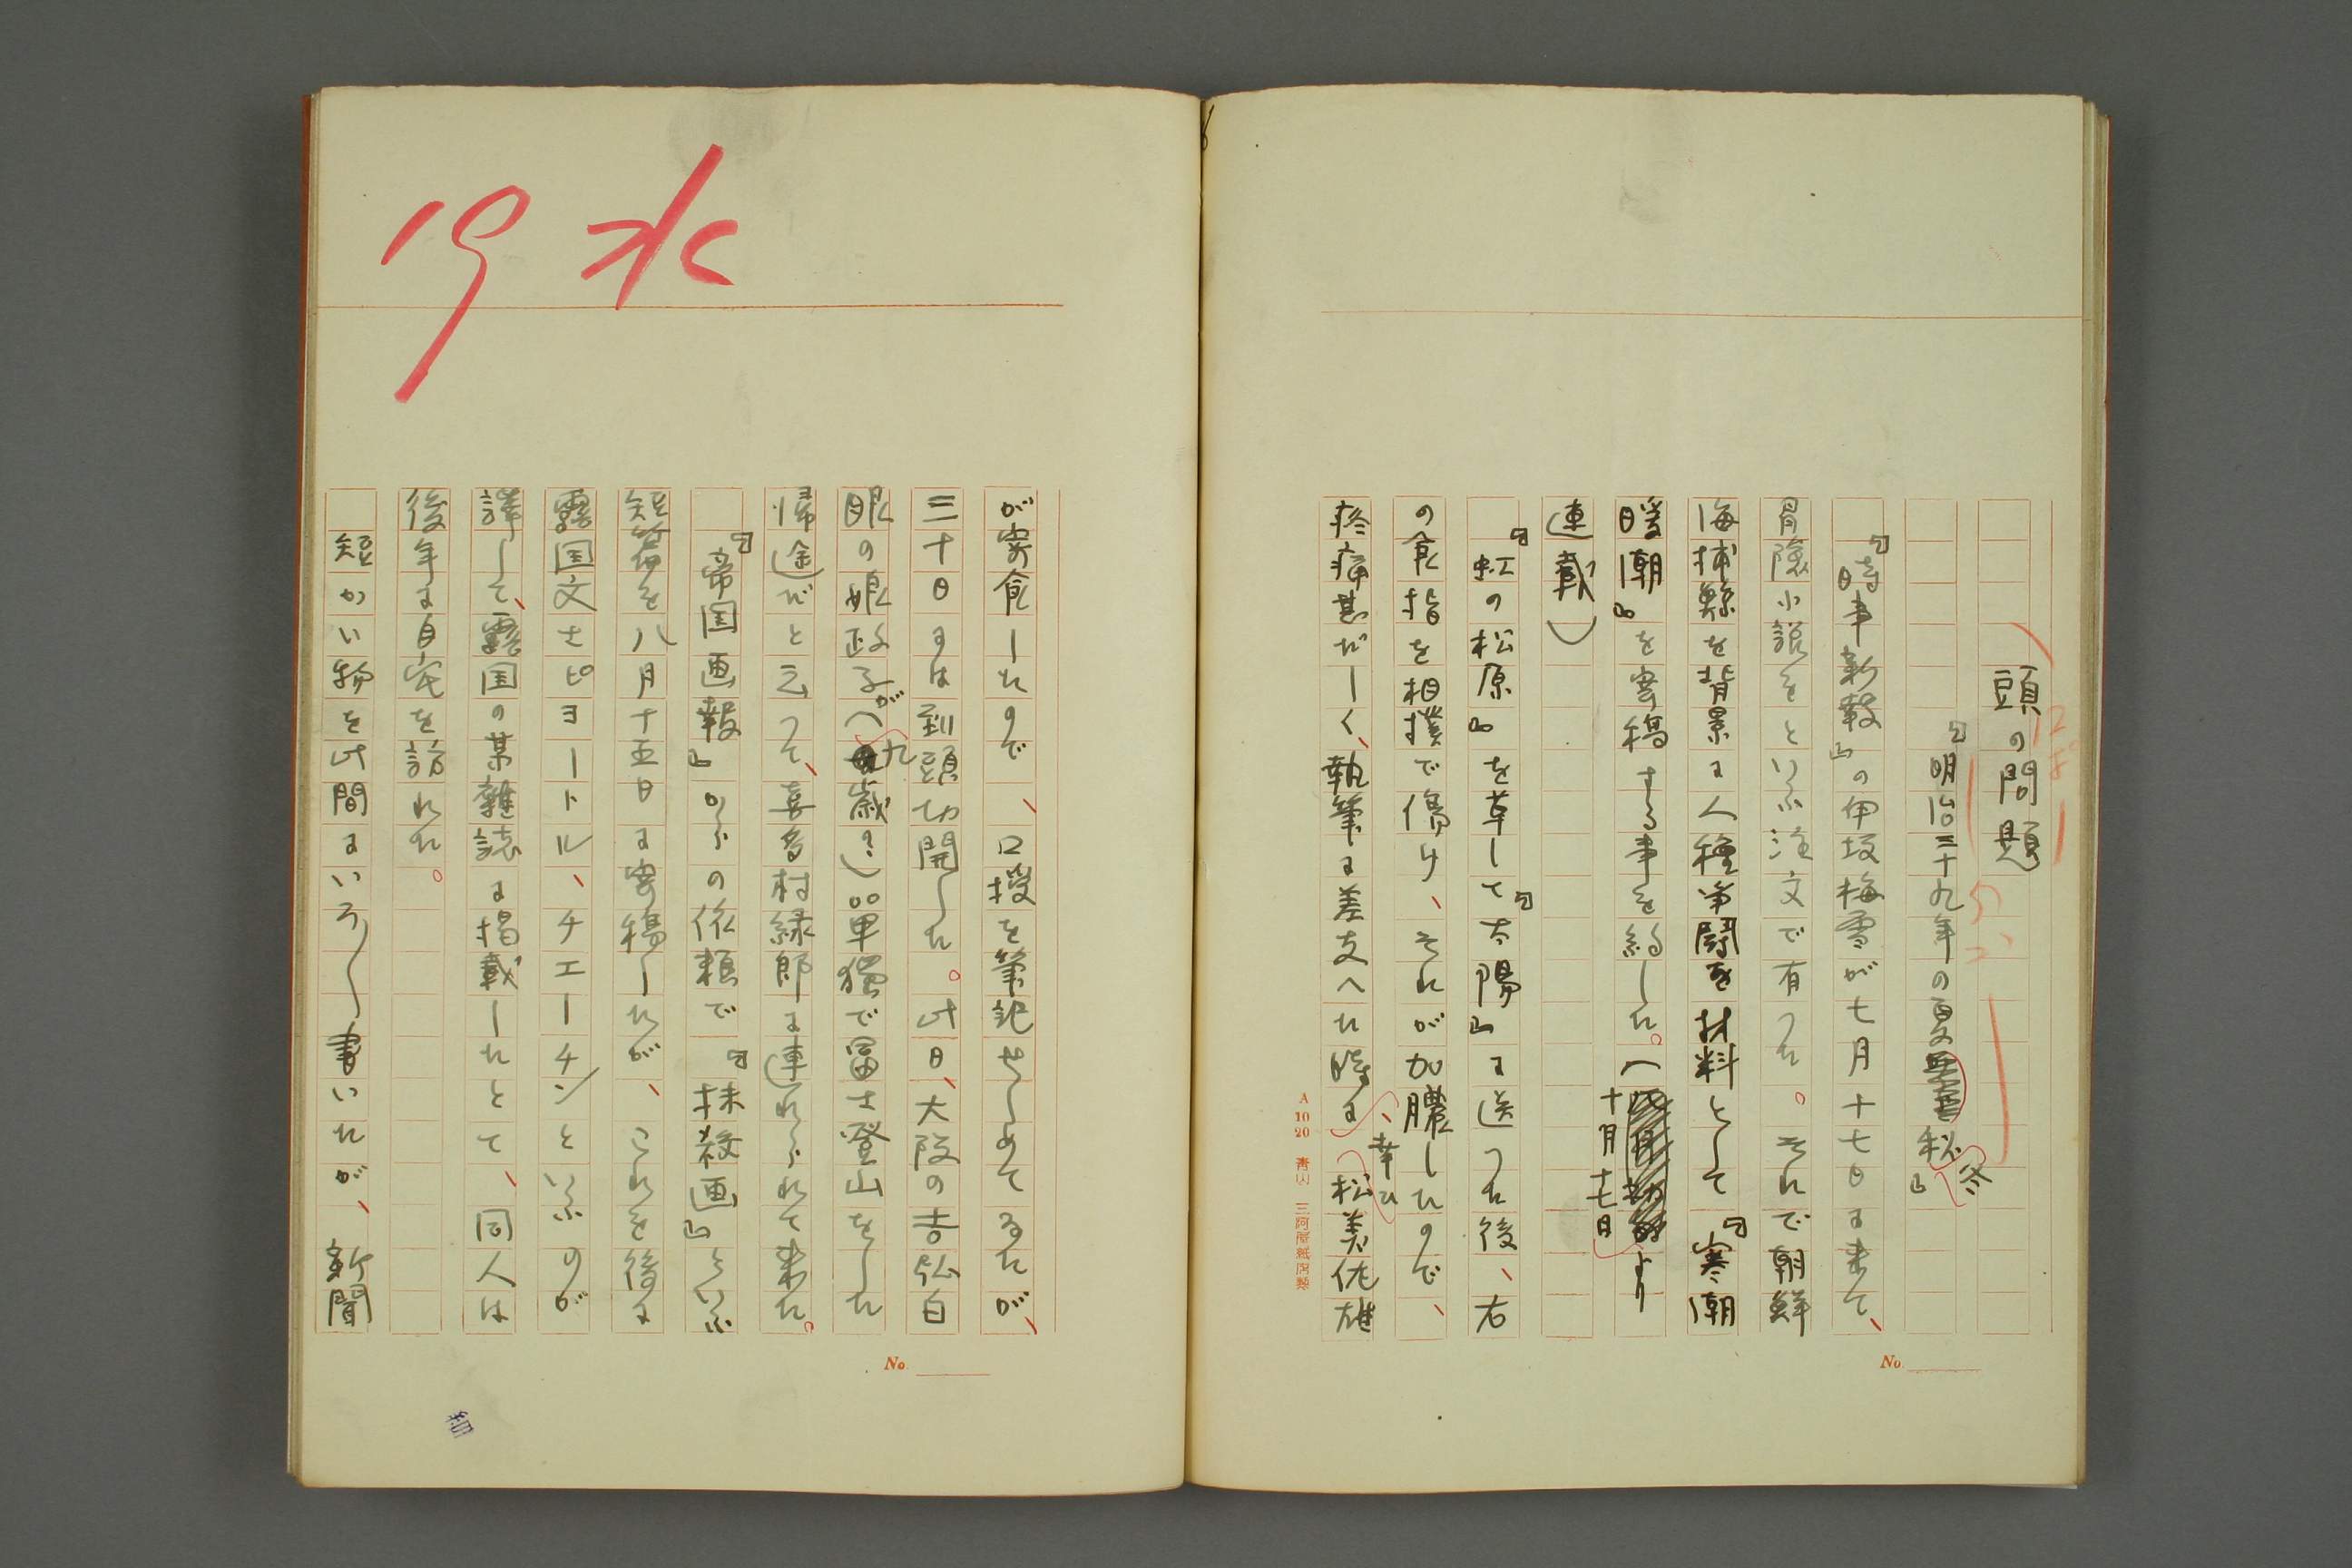 頭の問題
『明治三十九年の夏秋冬』
『時事新報』の伊坂梅雪が七月十七日に来て、
冒険小説をといふ注文で有つた。それで朝鮮
海捕鯨を背景に人種争闘を材料として『寒潮
暖潮』を寄稿する事を約した。(十月十七日より
連載)
『虹の松原』を草して『太陽』に送つた後、右
の食指を相撲で傷け、それが加膿したので、
疼痛甚だしく、執筆に差支へた時に、幸ひ松美佐雄
A 10 20 青山 三河屋紙店製
No.
19 水
が寄食したので、口授を筆記せしめてゐたが、
三十日には到頭切開した。此日、大阪の吉弘白
眼の娘政子が(九歳?)単独で富士登山をした
帰途だと云つて、喜多村緑郎に連れられて来た。
『帝国画報』からの依頼で『抹殺画』といふ
短篇を八月十五日に寄稿したが、これを後に
露国文士ピヨートル、チエーチンといふのが
譯して、露国の某雑誌に掲載したとて、同人は
後年に自宅を訪れた。
短かい物を此間にいろ〳〵書いたが、新聞
No.